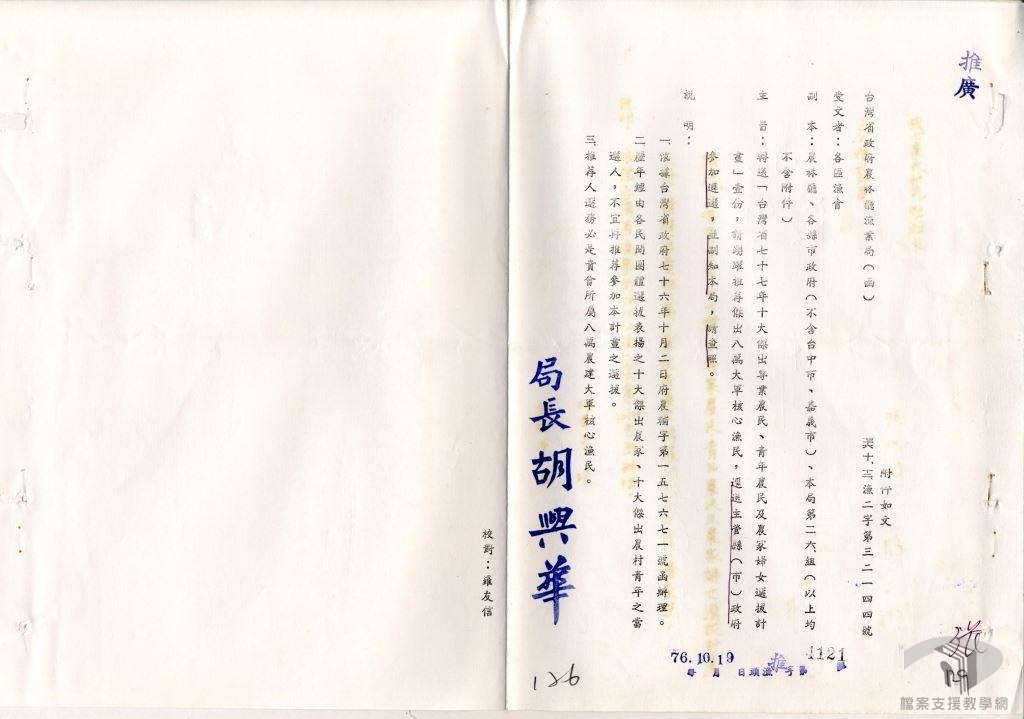 推廣
台灣省政府農林廳漁業局(函)
附件如文
漁二字第三二一四四號
受文者:各區漁會
副 本:農林廳、各縣市政府(不含台中市、嘉義市)、本局第二、六組(以上均
不含附件)
主 旨:轉送「台灣省七十七年十大傑出專業農民、青年農民及農家婦女選拔計
畫」壹份,請踴躍推荐傑出八萬大軍核心漁民,逕送主管縣(市)政府
參加遴選,並副知本局,請查照。
說 明:
一、依據台灣省政府七十六年十月二日府農輔字第一五七六七一號函辦理。
二、歷年經由各民間團體選拔表揚之十大傑出農家、十大傑出農村青年之當
選人,不宜再推荐參加本計畫之選拔。
三、推荐人選務必是貴會所屬八萬農建大軍核心漁民。
局長 胡興華
校對:羅友信
76.10.19
年 月 日頭漁 推 字第 1121 號
126
129
檔案支援教學網